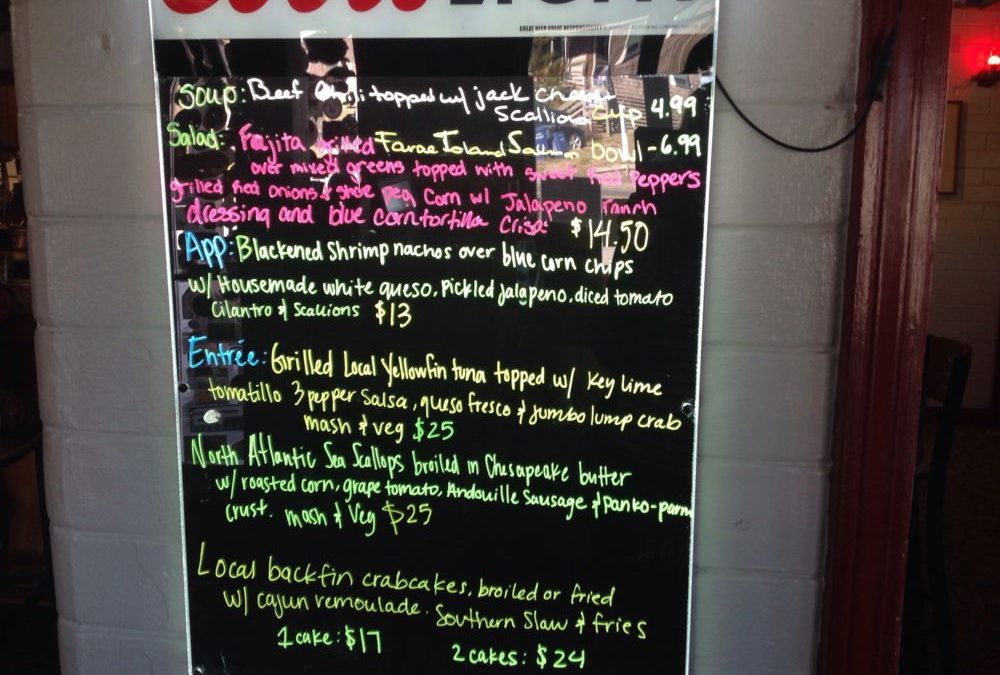 Coors LIGHT
Soup: Beef Chili topped w/ jack cheese
Scallions Cup 4.99
Salad: Fajita grilled Faroe Island Salmon bowl - 6.99
over mixed greens topped with sweet Red Peppers
grilled Red onions & shoe peg Corn w/ Jalapeno ranch
dressing and blue corn tortilla Crisps $14.50
App: Blackened Shrimp nachos over blue corn chips
w/ Housemade white queso, Pickled jalapeno, diced tomato
Cilantro & Scallions $13
Entrée: Grilled Local Yellowfin tuna topped w/ Key lime
tomatillo 3 pepper Salsa, queso fresco & Jumbo lump crab
mash & veg $25
North Atlantic Sea Scallops broiled in Chesapeake butter
w/ roasted corn, grape tomato, Andouille Sausage & Panko-parm
crust. mash & Veg $25
Local backfin crabcakes, broiled or fried
w/ cajun remoulade. Southern Slaw & fries
1 cake: $17
2 cakes: $24